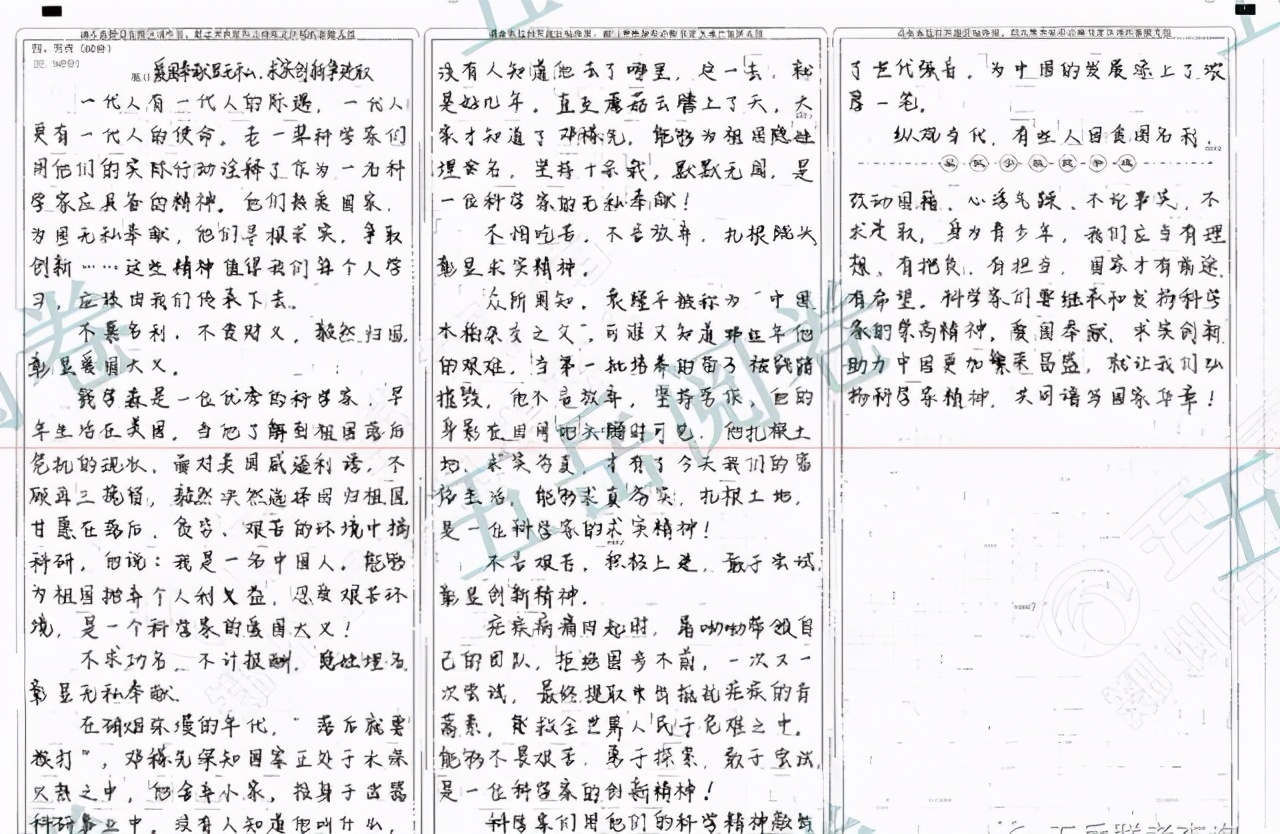 四、写作（60分）
题() 爱国奉献显无私，求实创新争进取
一代人有一代人的际遇，一代人
更有一代人的使命。老一辈科学家们
用他们的实际行动诠释了作为一名科
学家应具备的精神。他们热爱国家，
为国无私奉献，他们寻根求实，争取
创新……这些精神值得我们每个人学
习，应该由我们传承下去。
不慕名利，不贪财义，毅然归国，
彰显爱国大义。
钱学森是一位优秀的科学家，早
年生活在美国，当他了解到祖国落后
危机的现状，面对美国威逼利诱，不
顾再三挽留，毅然决然选择回归祖国，
甘愿在落后、贫穷、艰苦的环境中搞
科研，他说：我是一名中国人。能够
为祖国抛弃个人利益，忍受艰苦环
境，是一个科学家的爱国大义！
不求功名，不计报酬，隐姓埋名，
彰显无私奉献。
在硝烟弥漫的年代，“落后就要
挨打”，邓稼先深知国家正处于水深
火热之中，他舍弃小家，投身于武器
科研事业中。没有人知道他叫什么，
没有人知道他去了哪里，这一去，就
是好几年。直至蘑菇云腾上了天，大
家才知道了邓稼先，能够为祖国隐姓
埋名，坚持十余载，默默无闻，是
一位科学家的无私奉献！
不怕吃苦，不言放弃，扎根院头
彰显求实精神。
众所周知，袁隆平被称为“中国
水稻杂交之父”，可谁又知道那些年他
的艰难，当第一批培养的苗子被践踏
摧毁，他不言放弃，坚持劳作，他的
身影在田间地头随时可见，他扎根土
地，求实为真，才有了今天我们的富
裕生活，能够求真务实，扎根土地，
是一位科学家的求实精神！
不言艰苦，积极上进，敢于尝试
彰显创新精神。
疟疾病痛四起时，屠呦呦带领自
己的团队，拒绝固步不前，一次又一
次尝试，最终提取出抵抗疟疾的青
蒿素，拯救全世界人民于危难之中。
能够不畏艰苦，勇于探索，敢于尝试
是一位科学家的创新精神！
科学家们用他们的科学精神
了世代强音，为中国的发展添上了浓
厚一笔。
纵观当代，有些人因贪图名利，
改动国籍、心浮气躁、不论事实，不
求进取，身为青少年，我们应当有理
想、有抱负、有担当，国家才有前途，
有希望。科学家们要继承和发扬科学
家的崇高精神，爱国奉献，求实创新
助力中国更加繁荣昌盛，就让我们弘
扬科学家精神，共同谱写国家华章！
五岳阅卷
五岳阅卷